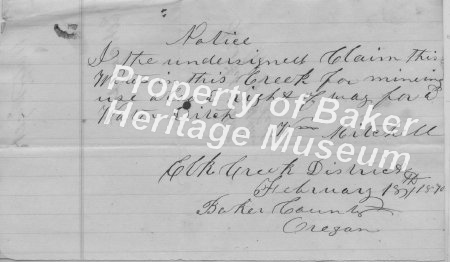 Notice
I the undersigned Claim this
Water in this Creek for mining
use and right of way for a
Water Ditch
Wm Mitchell
Elk Creek District
February 18th 1870
Baker County
Oregon
Property of Baker
Heritage Museum